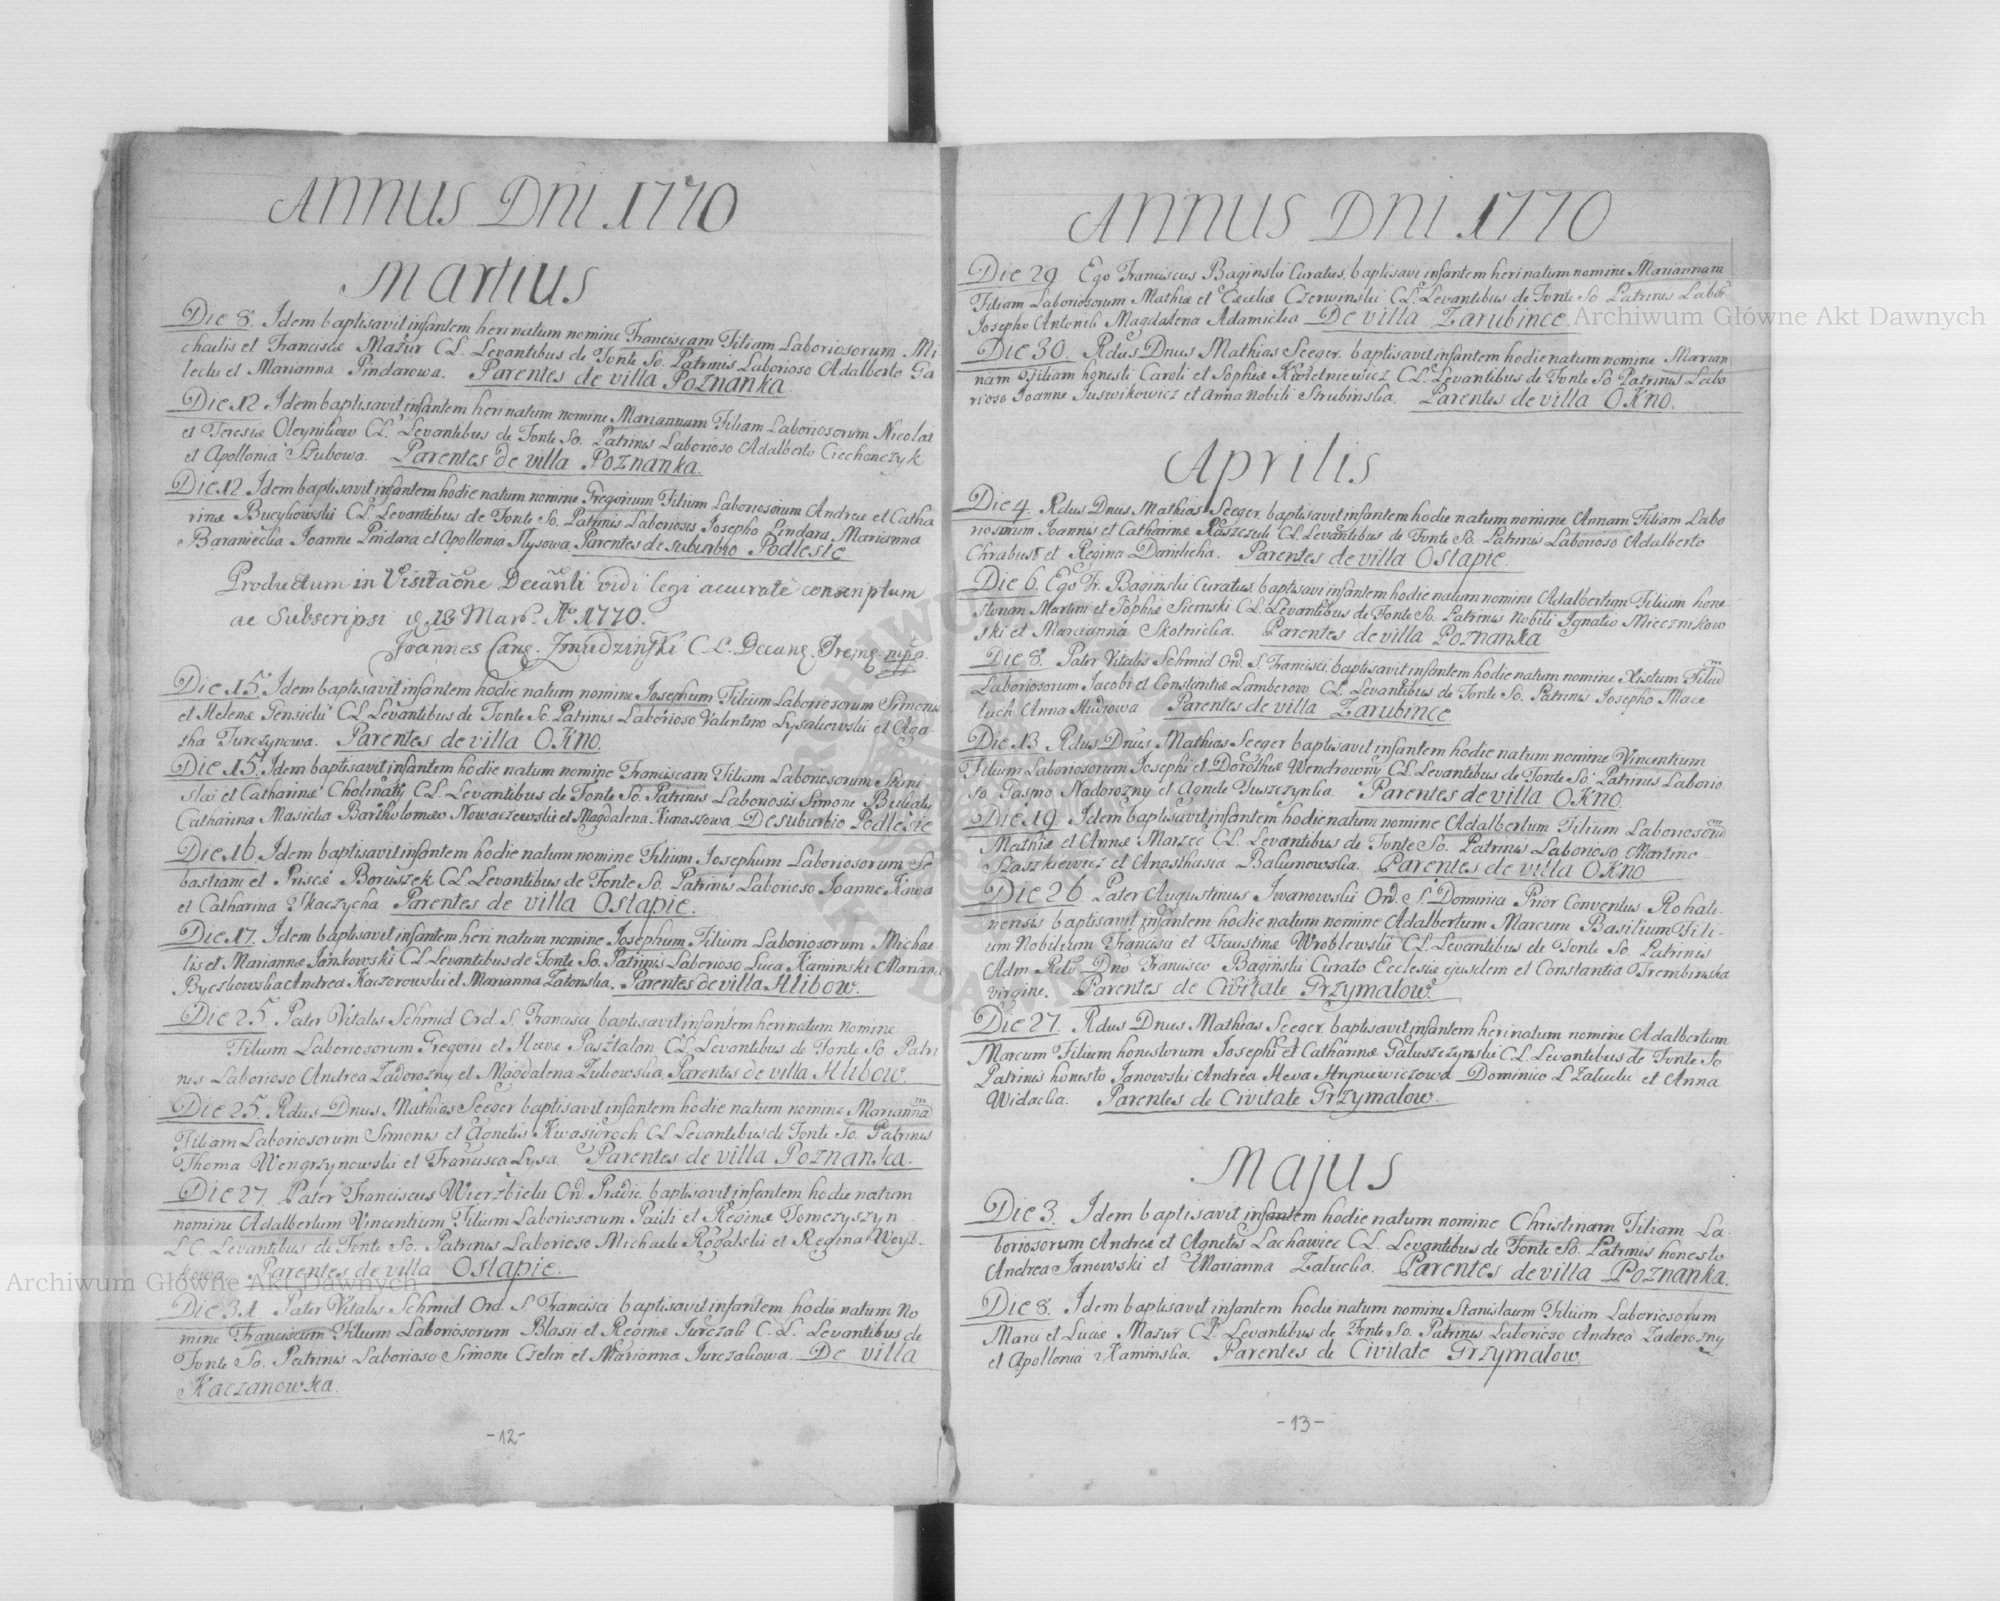 ANNUS DNI 1770
Martius
Die 8. Idem baptisavit infantem heri natum nomine Franciscam Filiam Laboriosorum Mi
chaelis et Franciscæ Mazur CL. Levantibus de Fonte So. Patrinis Laborioso Adalberto Ga
lecki et Marianna Pindarowa. Parentes de villa Poznanka
Die 12 Idem baptisavit infantem heri natum nomine Mariannam Filiam Laboriosorum Nicolai
et Teresiæ Oleynikow CL. Levantibus de Fonte So. Patrinis Laborioso Adalberto Ciechonczyk
et Apollonia Szubowa. Parentes de villa Poznanka.
Die 12 Idem baptisavit infantem hodie natum nomine Gregorium Filium Laboriosorum Andreæ et Catha
rinæ Bucykowski CL. Levantibus de Fonte So. Patrinis Laboriosis Josepho Pindara Marianna
Baraniecka Joanne Pindara et Apollonia Slysowa Parentes de suburbio Podlesie
Productum in Visitaõne Decanli vidi legi accurate conscriptum
ac Subscripsi d. 13 Mar. Ao 1770.
Joannes Cang. Zmudzinski C. L. Decang. Tremg. mpa.
Die 15 Idem baptisavit infantem hodie natum nomine Josephum Filium Laboriosorum Simonis
et Helenæ Gensicki CL Levantibus de Fonte So. Patrinis Laborioso Valentino Lysakowski et Aga
tha Turczynowa. Parentes de villa OKno.
Die 15. Idem baptisavit infantem hodie natum nomine Franciscam Filiam Laboriosorum Stani
slai et Catharinæ Cholinaty CL Levantibus de Fonte So. Patrinis Laboriosis Simone
Catharina Masicka Bartholomæo Nowaczewski et Magdalena Kunaszowa. De suburbio Podlesie
Die 16 Idem baptisavit infantem hodie natum nomine Filium Josephum Laboriosorum Se
bastiani et Priscæ Boruszek CL Levantibus de Fonte So. Patrinis Laborioso Joanne Kawa
et Catharina Tkaczycha Parentes de villa Ostapie.
Die 17. Idem baptisavit infantem heri natum nomine Josephum Filium Laboriosorum Michae
lis et Mariannæ Jankowski CL Levantibus de Fonte So. Patrinis Laborioso Luca Kaminski Marian
Byczkowska Andrea Kaczorowski et Marianna Zatonska. Parentes de villa Hlibow.
Die 25 Pater Vitalis Schmid Ord. S. Francisci baptisavit infantem heri natum nomine
Filium Laboriosorum Gregorii et Hevæ Pasztalon CL Levantibus de Fonte So Patri
nis Laborioso Andrea Zadorozny et Magdalena Zukowska Parentes de villa Hlibow.
Die 25. Rdus Dnus Mathias Seeger baptisavit infantem hodie natum nomine Mariannam
Filiam Laboriosorum Simonis et Agnetis Kwasigroch CL Levantibus de Fonte So. Patrinis
Thoma Wengrzynowski et Francisca Lysa Parentes de villa Poznanka.
Die 27. Pater Franciscus Wierzbicki Ord. Prædic. baptisavit infantem hodie natum
nomine Adalbertum Vincentium Filium Laboriosorum Pauli et Reginæ Tomczyszyn
L C. Levantibus de Fonte So. Patrinis Laborioso Michaele Rogalski et Regina Woyt
kowa. Parentes de villa Ostapie.
Die 31 Pater Vitalis Schmid Ord. S. Francisci baptisavit infantem hodie natum no
mine Franciscum Filium Laboriosorum Blasii et Reginæ Jurczak C. L. Levantibus de
Fonte So. Patrinis Laborioso Simone Czelin et Marianna Jurczakowa. De villa
Kaczanowka.
-12-
ANNUS DNI 1770
Die 29 Ego Franciscus Baginski Curatus baptisavi infantem heri natum nomine Mariannam
Filiam Laboriosorum Mathiæ et Cæciliæ Czerwinski CL. Levantibus de Fonte So Patrinis Labo
Josepho Antonik Magdalena Adamicka De villa Zarubince
Die 30. Rdus Dnus Mathias Seeger baptisavit infantem hodie natum nomine Marian
nam Filiam honesti Caroli et Sophiæ Kwietniewicz CL. Levantibus de Fonte So Patrinis Labo
rioso Joanne Juswikowicz et Anna nobili Strubinska. Parentes de villa OKno.
Aprilis
Die 4. Rdus Dnus Mathias Seeger baptisavit infantem hodie natum nomine Annam Filiam Labo
riosorum Joannis et Catharinæ Kaszczuk CL Levantibus de Fonte So. Patrinis Laborioso Adalberto
Chrabust et Regina Danilicha. Parentes de villa Ostapie.
Die 6 Ego Fr. Baginski Curatus baptisavi infantem hodie natum nomine Adalbertum Filium hone
storum Martini et Sophiæ Siemski CL. Levantibus de Fonte So. Patrinis Nobili Ignatio Miecznikow
ski et Marcianna Skotnicka. Parentes de villa Poznanka
Die 8 Pater Vitalis Schmid Ord. S. Francisci baptisavit infantem hodie natum nomine Xistum Filium
Laboriosorum Jacobi et Constantiæ Lamberow CL Levantibus de Fonte So. Patrinis Josepho Mace
luch Anna Mudrowa Parentes de villa Zarubince
Die 13 Rdus Dnus Mathias Seeger baptisavit infantem hodie natum nomine Vincentium
Filium Laboriosorum Josephi et Dorotheæ Wendrowny CL. Levantibus de Fonte So. Patrinis Laborio
so Gaspro Nadorozny et Agnete Tuszczynska. Parentes de villa OKno.
Die 19 Idem baptisavit infantem hodie natum nomine Adalbertum Filium Laboriosorum
Mathiæ et Annæ Marzec CL Levantibus de Fonte So. Patrinis Laborioso Martino
Staszkiewicz et Anasthasia Balunowska. Parentes de villa OKno
Die 26. Pater Augustinus Iwanowski Ord. S. Dominici Prior Conventus Rohati
nensis baptisavit infantem hodie natum nomine Adalbertum Marcum Basilium Fili
um Nobilium Francisci et Faustinæ Wroblewski CL Levantibus de Fonte So. Patrinis
Adm Rdo Dno Francisco Baginski Curato Ecclesiæ ejusdem et Constantia Trembinska
virgine. Parentes de Civitate Grzymałow.
Die 27. Rdus Dnus Mathias Seeger baptisavit infantem heri natum nomine Adalbertum
Marcum Filium honestorum Josephi et Catharinæ Galuszczynski CL. Levantibus de Fonte So
Patrinis honesto Janowski Andrea Heva Hryniewiczowa Dominico L Zalucki et Anna
Widacka. Parentes de Civitate Grzymałow.
Majus
Die 3. Idem baptisavit infantem hodie natum nomine Christinam Filiam La
boriosorum Andreæ et Agnetis Lachawiec CL. Levantibus de Fonte So. Patrinis honesto
Andrea Janowski et Marianna Zalucka. Parentes de villa Poznanka.
Die 8. Idem baptisavit infantem hodie natum nomine Stanislaum Filium Laboriosorum
Marci et Luciæ Mazur CL. Levantibus de Fonte So. Patrinis Laborioso Andrea Zadorozny
et Apollonia Kaminska. Parentes de Civitate Grzymałow.
-13-
Archiwum Główne Akt Dawnych
Archiwum Główne Akt Dawnych